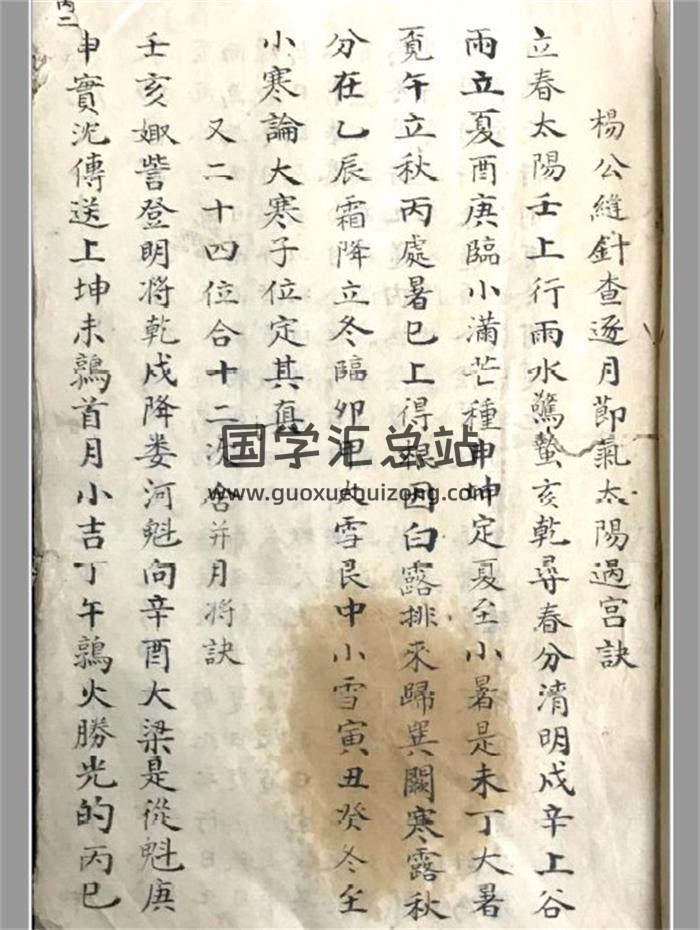 楊公縫針查逐月節氣太陽過宮訣
立春太陽壬上行雨水驚蟄亥乾尋春分清明戍辛上谷
雨立夏酉庚臨小滿芒種申坤定夏至小暑是未丁大暑
覓午立秋丙處暑巳上得因白露排來歸巽闕寒露秋
分在乙辰霜降立冬臨卯甲大雪艮中小雪寅丑癸冬至
小寒論大寒子位定其真
又二十四位合十二沈并月將訣
壬亥娵訾登明將乾戍降婁河魁向辛酉大梁是從魁庚
申實沈傳送上坤未鶉首月小吉丁午鶉火勝光的丙巳
国学汇总站
www.guoxuehuizong.com